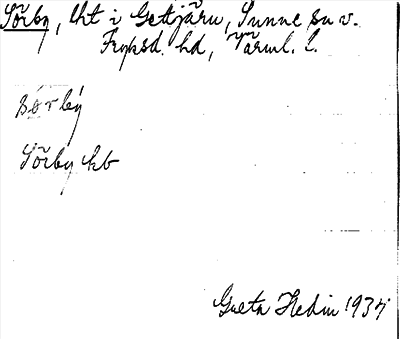 Sörby, lht i Gettjärn, Sunne sn v.
Fryksd. hd, Värml. l.
sö̀rbý
Sörby kb
Greta Hedin 1937